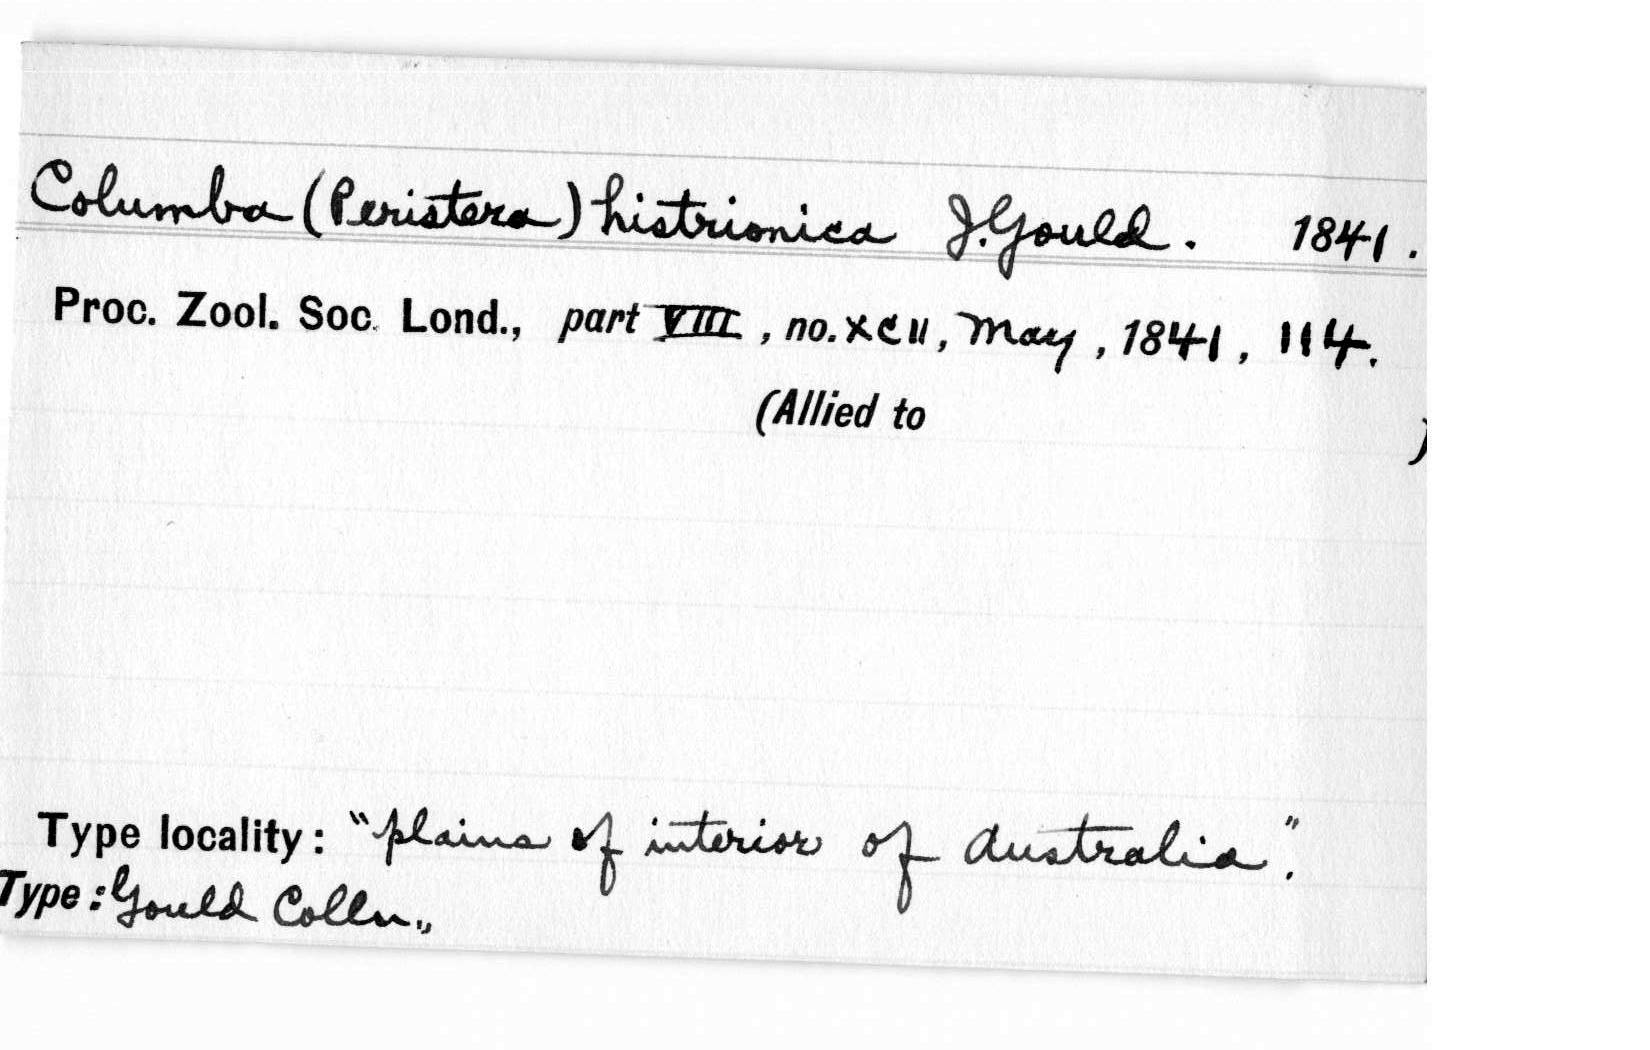 Columba (Peristera) histrionica J. Gould. 1841.
Proc. Zool. Soc. Lond., part VIII, no. XCII, May, 1841, 114.
(Allied to )
Type locality: "plains of interior of Australia".
Type: Gould Colln.,